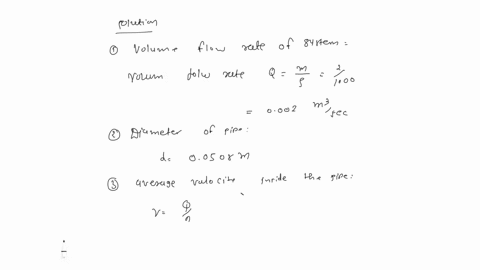 Solution
① Volume flow rate of system:
volum folw rate Q = m/ρ = 2/1000
= 0.002 m³/sec
② Diameter of pipe:
d = 0.0508 m
③ average valocite inside the pipe:
v = Q/A